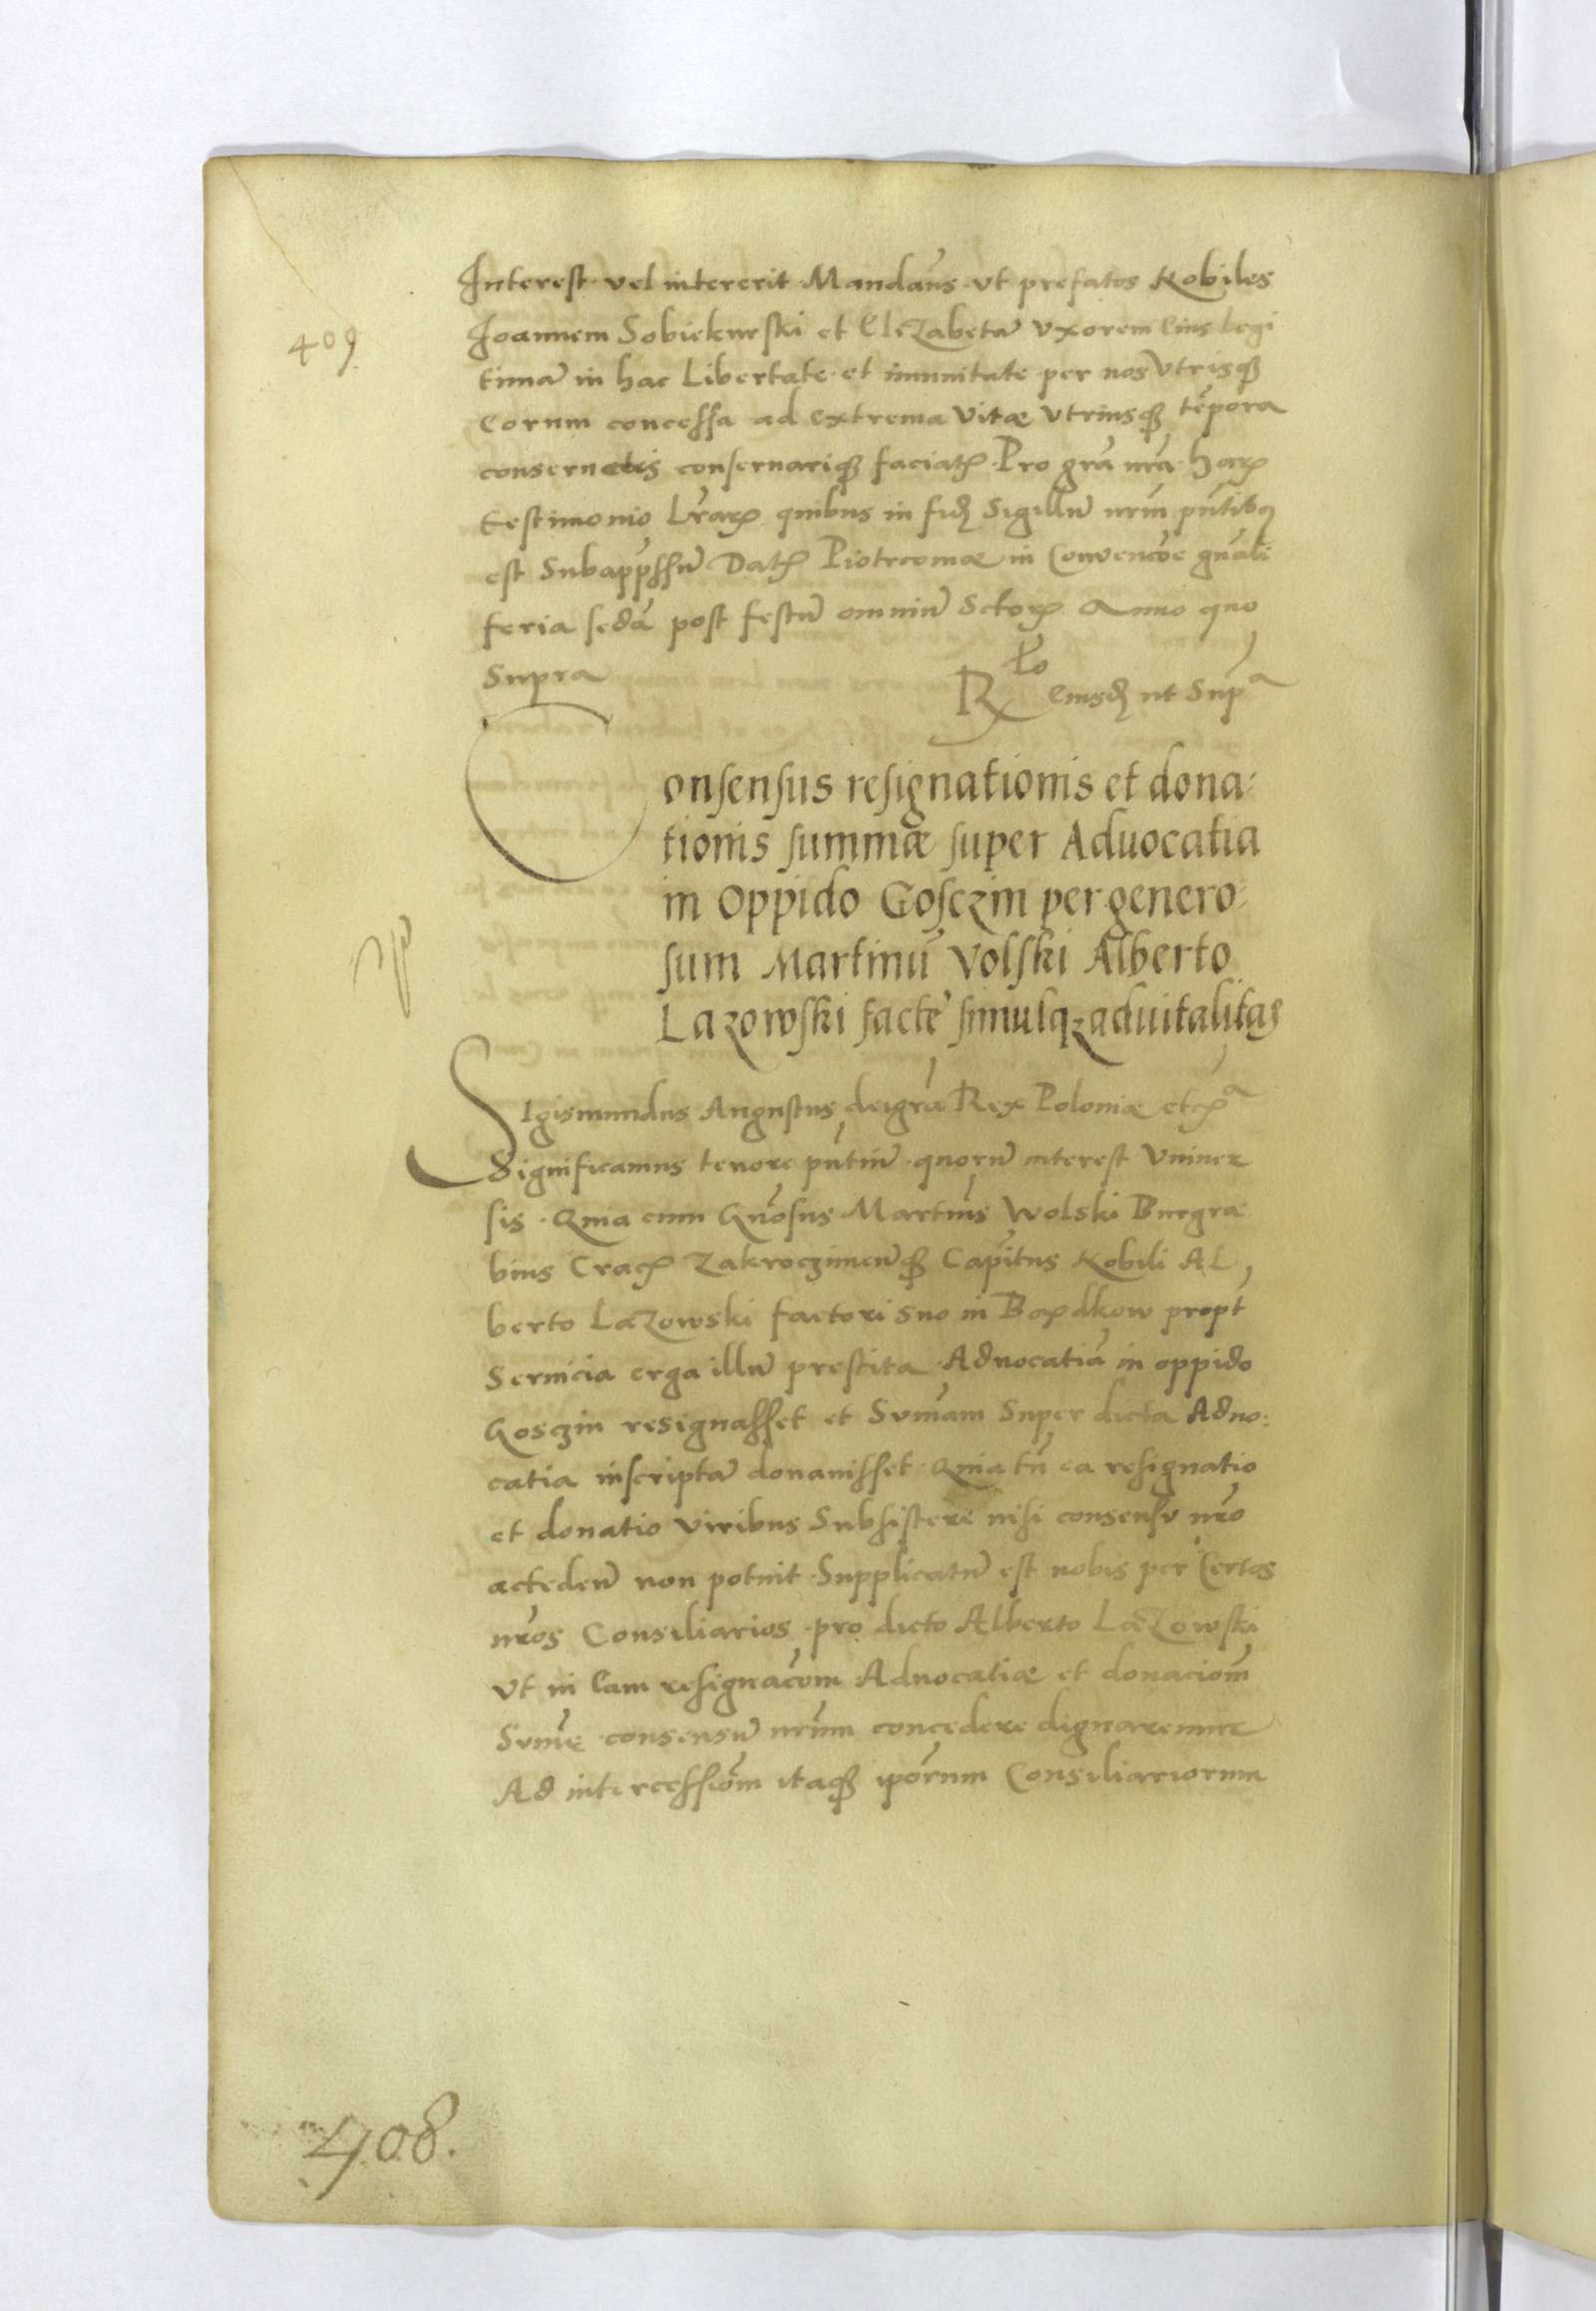 409
Interest vel intererit Mandan̄s vt prefatos Nobiles
Joannem Sobiekurski et Elizabetā vxorem Eius legi
timā in hac Libertate et im̄unitate per nos vtrisq꜄
Eorum concessa ad extrema vitæ vtriusq꜄ tēpora
conseruetis conseruariq꜄ faciatꝭ Pro gr̄a nr̄a Harꝝ
testimonio Lr̄arꝝ quibus in fidē Sigillū nr̄m pn̄tibꝯ
est Subappss̄um Datꝭ Piotrcouiæ in Conuencōe gn̄ali
feria scd̄a post festū omniū Sctorꝝ Anno quo
Supra
Rlō Eiusd̄ ut Supª
Consensus resignationis et dona-
tionis summæ super Aduocatia
in Oppido Gosczin per genero-
sum Martinū Volski Alberto
Lazowski factę simulq꜄ aduitalitas
Sigismundus Augustus dei gr̄a Rex Poloniæ etcꝭª
Significamus tenore pn̄tiū quorū interest Vniuer
sis. Quia cum Gn̄osus Martin̄s Wolski Burgra
bius Cracꝭ Zakroczimen̄q꜄ Capit̄us Nobili Al
berto Lazowski factori suo in Barꝝdkow propt̄
Seruicia erga illū prestita Aduocatiā in oppido
Gosczin resignasset et Sum̄am Super dicta Aduo:
catia inscriptā donauisset Quia tn̄ ea resignatio
et donatio viribus Subsistere nisi consensu nr̄o
accedeñ non potuit Supplicatū est nobis per Certos
nr̄os Consiliarios pro dicto Alberto Lazowski
vt in Eam resignacōm Aduocatiæ et donaciōm
Sum̄e consensū nr̄um concedere dignaremur
Ad intercessiōm itaq꜄ ipōrum Consiliariorum
408.